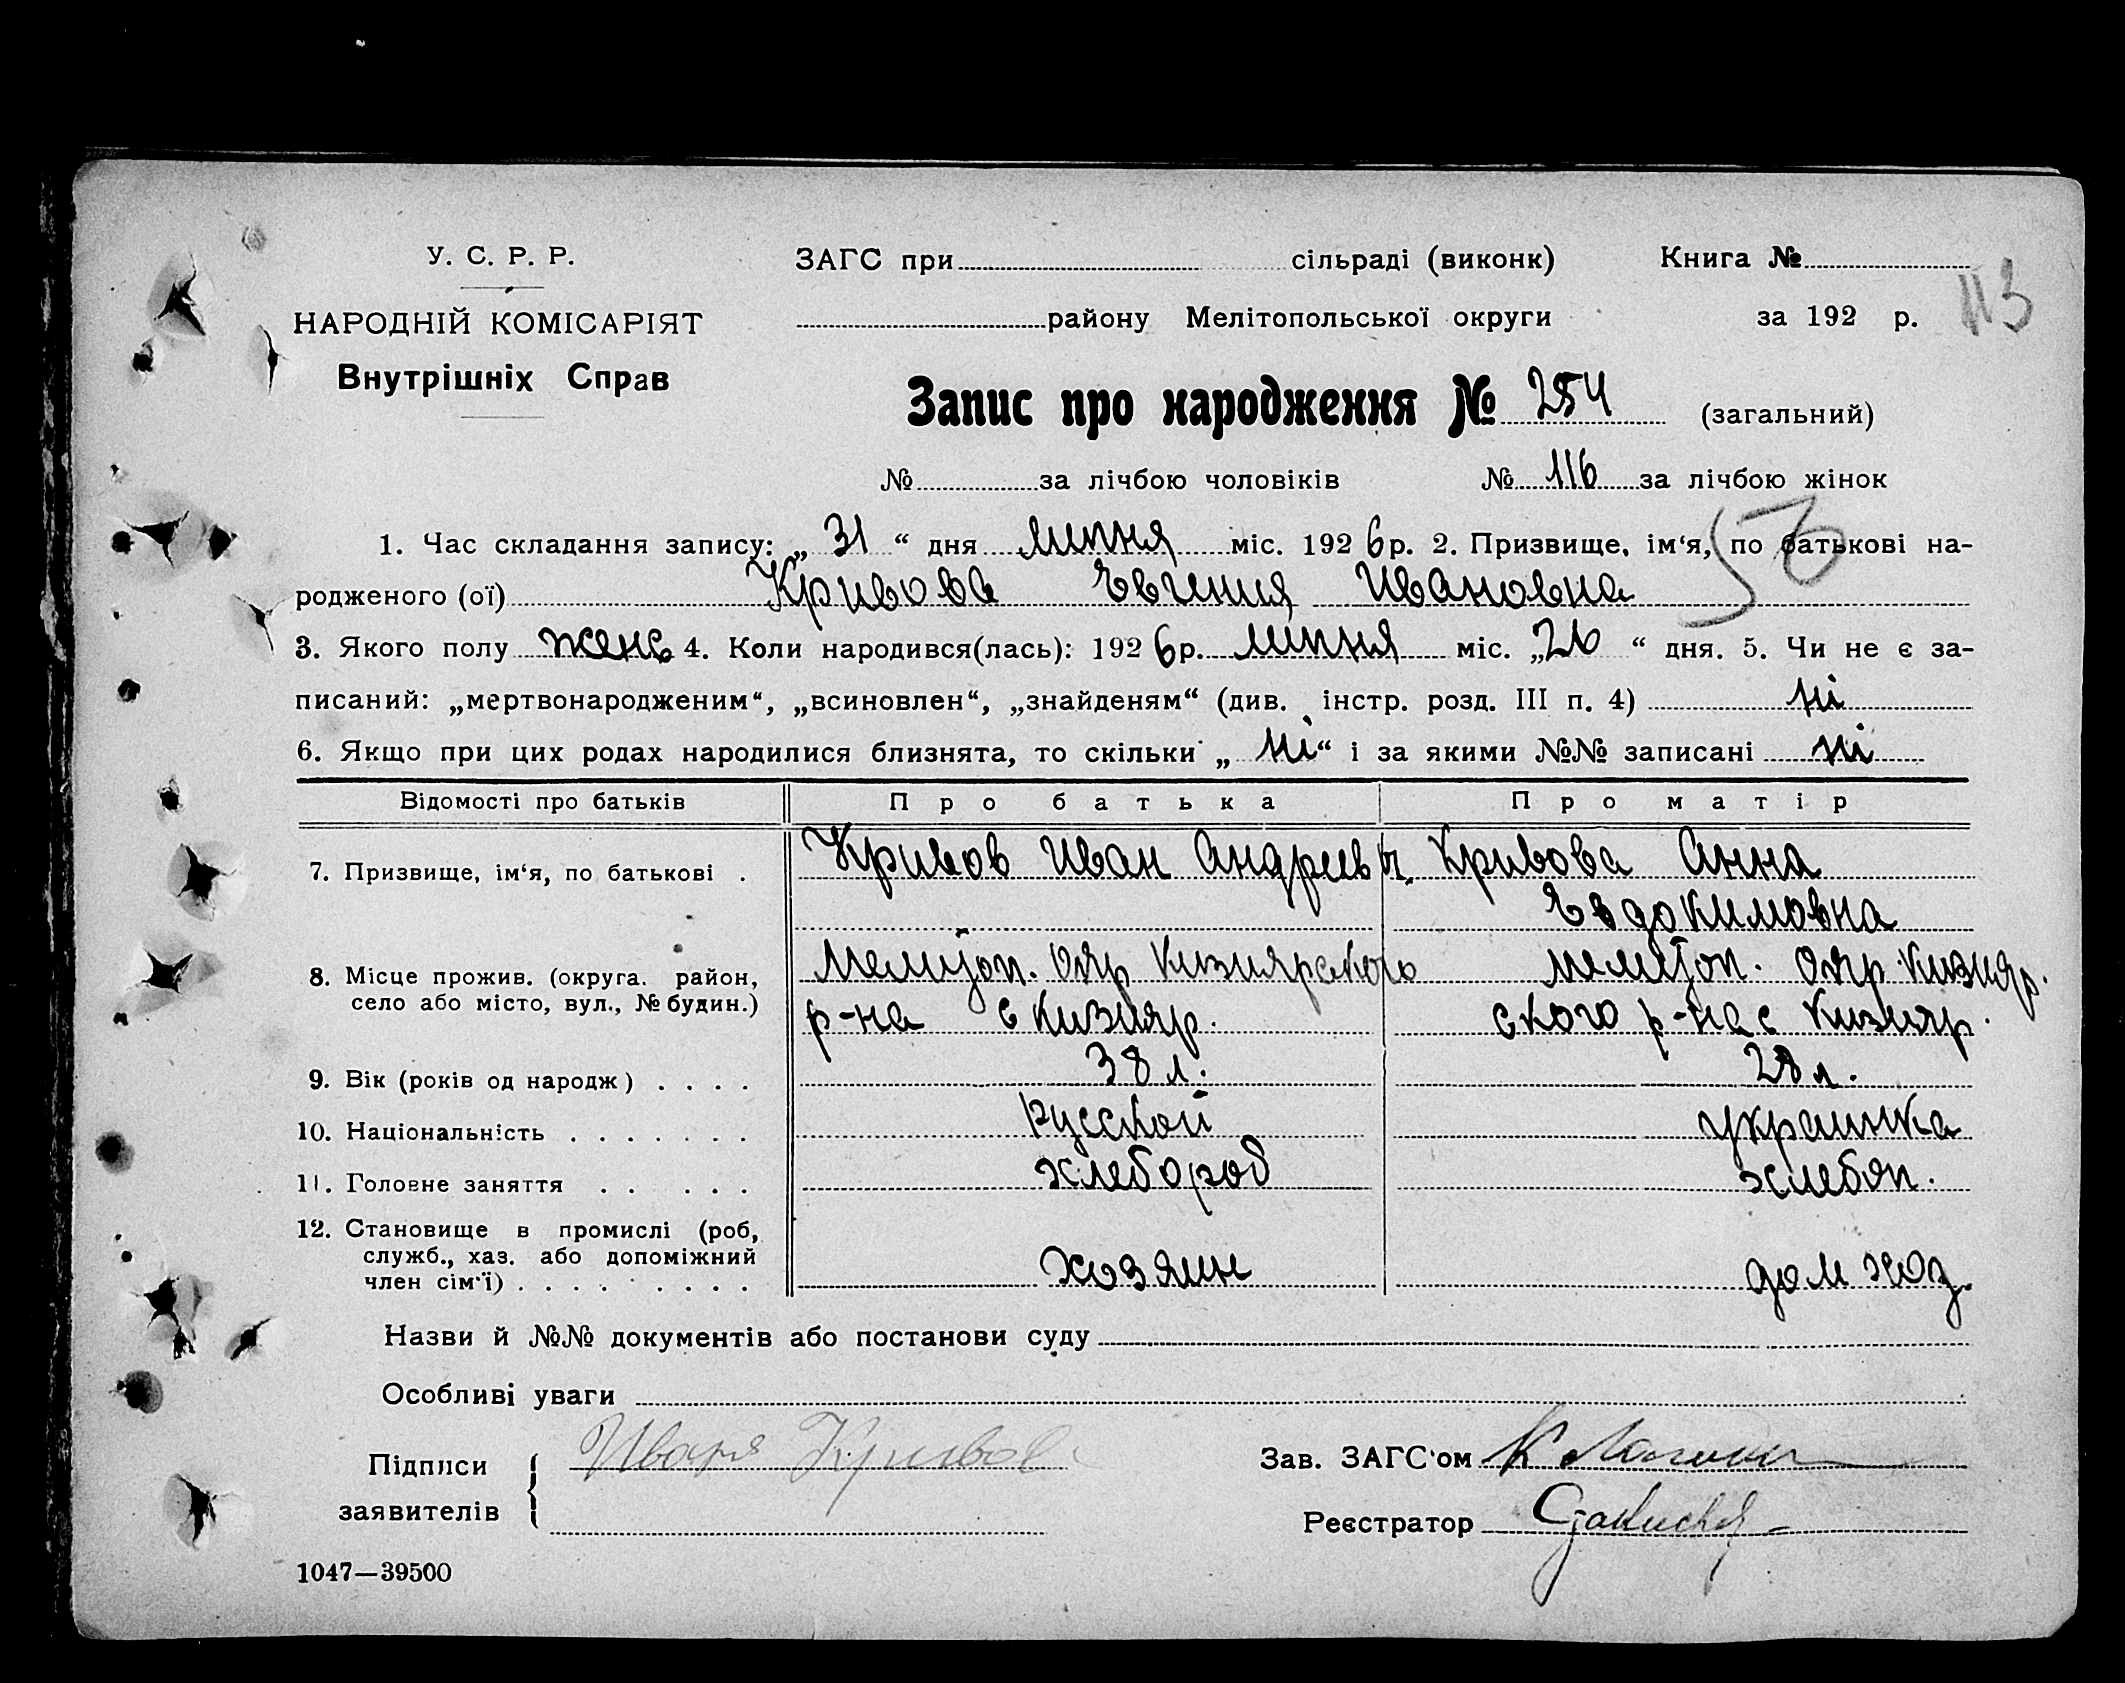 У. С. Р. Р.
НАРОДНІЙ КОМІСАРІЯТ
Внутрішніх Справ
ЗАГС при сільраді (виконк) Книга №
району Мелітопольської округи за 192 р.
113
Запис про народження № 254 (загальний)
№ за лічбою чоловіків № 116 за лічбою жінок
56
1. Час складання запису: „ 31 “ дня липня міс. 192 6 р. 2. Призвище, ім‘я, по батькові на-
родженого (ої) Кривова Евгения Ивановна
3. Якого полу женс 4. Коли народився(лась): 192 6 р. липня міс. „ 26 “ дня. 5. Чи не є за-
писаний: „мертвонародженим“, „всиновлен“, „знайденям“ (див. інстр. розд. III п. 4) ні
6. Якщо при цих родах народилися близнята, то скільки „ ні “ і за якими №№ записані ні
Відомості про батьків Про батька Про матір
7. Призвище, ім‘я, по батькові . Кривов Иван Андреев Кривова Анна
Евдокимовна
8. Місце прожив. (округа. район, село або місто, вул., № будин.) Мелитоп. Окр Кизиярского Мелитоп. Окр Кизияр.
р-на с Кизияр. ского р-на с Кизияр.
9. Вік (років од народж) . . . . 38 л. 28 л.
10. Національність . . . . . . . русской украинка
11. Головне заняття . . . . . хлебороб хлебоп.
12. Становище в промислі (роб,
служб., хаз. або допоміжний
член сім‘ї) . . . . . . . . хозяин дом хоз.
Назви й №№ документів або постанови суду
Особливі уваги
Підписи
заявителів
Иван Кривов
Зав. ЗАГС‘ом
Реєстратор
1047—39500